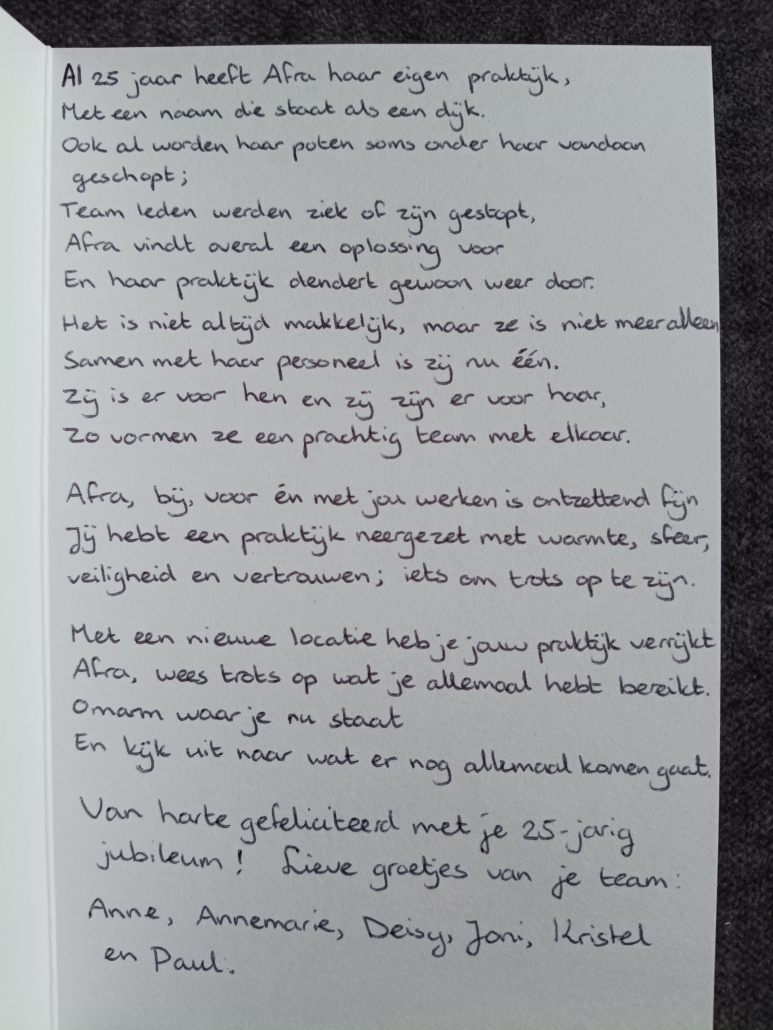 Al 25 jaar heeft Afra haar eigen praktijk,
Met een naam die staat als een dijk.
Ook al worden haar poten soms onder haar vandaan
geschopt;
Team leden werden ziek of zijn gestopt,
Afra vindt overal een oplossing voor
En haar praktijk dendert gewoon weer door.
Het is niet altijd makkelijk, maar ze is niet meer alleen
Samen met haar personeel is zij nu één.
Zij is er voor hen en zij zijn er voor haar,
Zo vormen ze een prachtig team met elkaar.
Afra, bij, voor én met jou werken is ontzettend fijn
Jij hebt een praktijk neergezet met warmte, sfeer,
veiligheid en vertrouwen; iets om trots op te zijn.
Met een nieuwe locatie heb je jouw praktijk verrijkt
Afra, wees trots op wat je allemaal hebt bereikt.
Omarm waar je nu staat
En kijk uit naar wat er nog allemaal komen gaat.
Van harte gefeliciteerd met je 25-jarig
jubileum! Lieve groetjes van je team:
Anne, Annemarie, Deisy, Joni, Kristel
en Paul.